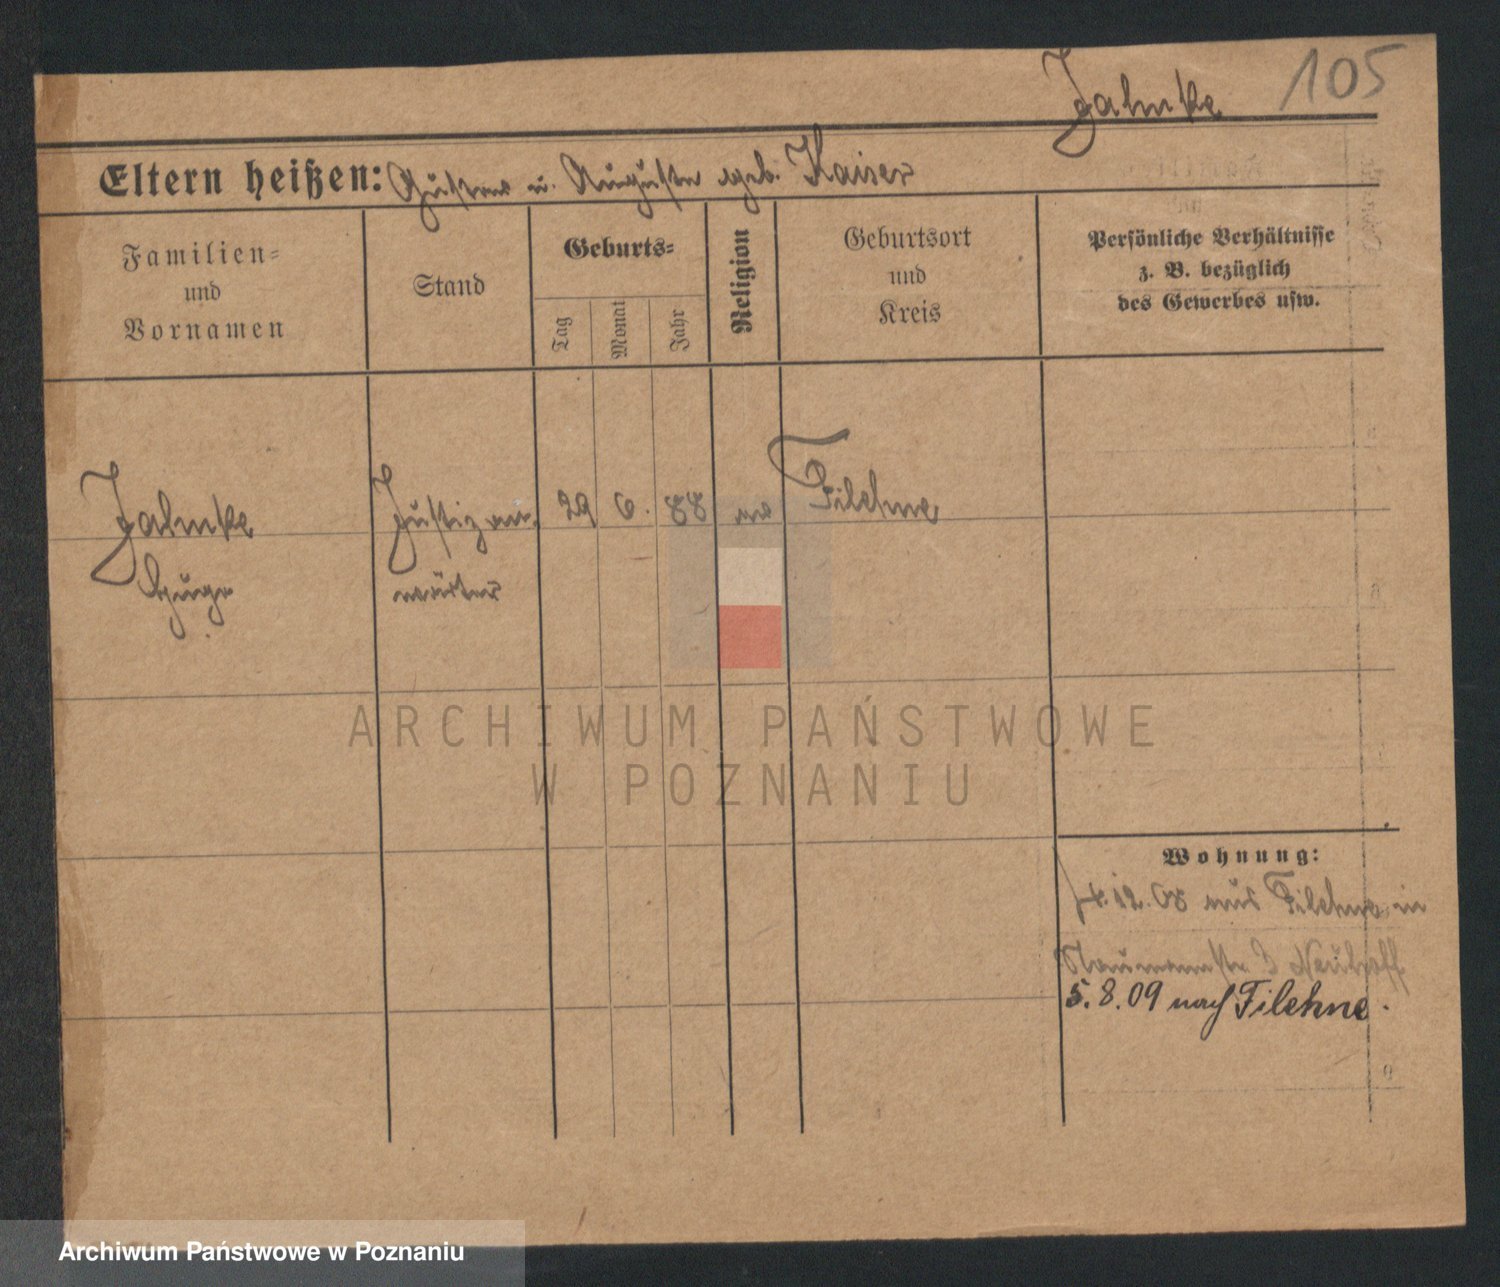 Jahnke 105
Eltern heißen: Gustav u. Auguste geb. Kaiser
Familien= und Vornamen
Stand
Geburts=
Tag
Monat
Jahr
Religion
Geburtsort
und
Kreis
Persönliche Verhältnisse
z. B. bezüglich
des Gewerbes usw.
Jahnke Justizan= 29 6. 88 ev Filehne
Hugo wärter
ARCHIWUM PAŃSTWOWE
W POZNANIU
Wohnung:
4.12.08 aus Filehne in
Naumannstr 3 Neuhoff
5.8.09 nach Filehne.
Archiwum Państwowe w Poznaniu